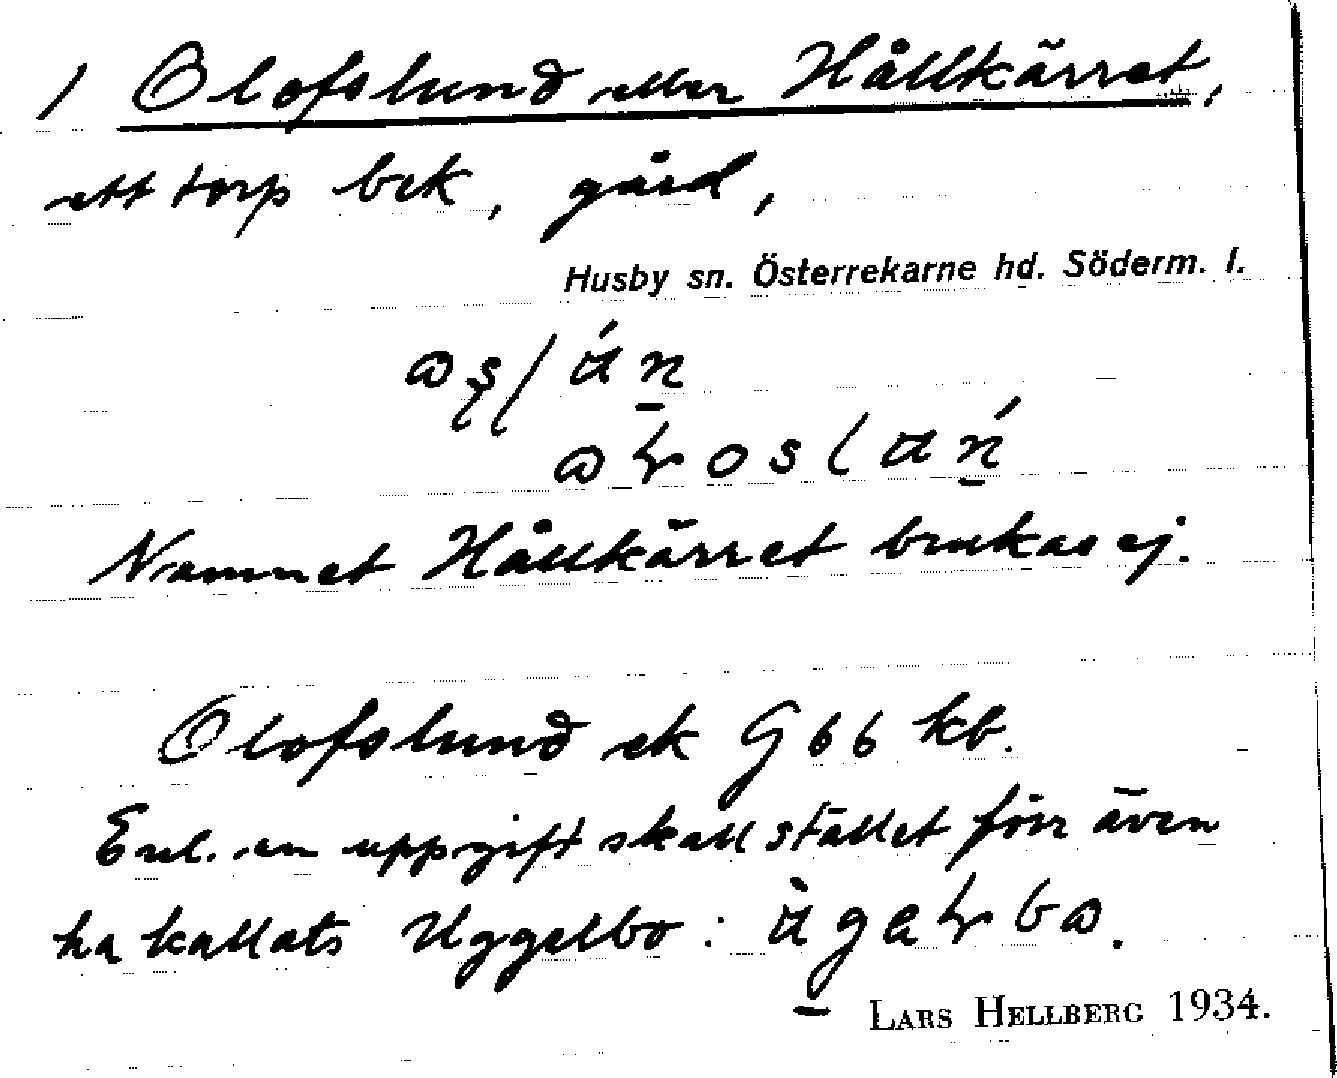 1 Olofslund eller Hållkärret,
ett torp bek, gård,
Husby sn. Österrekarne hd. Söderm. l.
Namnet Hållkärret brukas ej.
Olofslund ek G 66 kb.
Enl. en uppgift skall stället förr även
ha kallats Uggelbo:
LARS HELLBERG 1934.